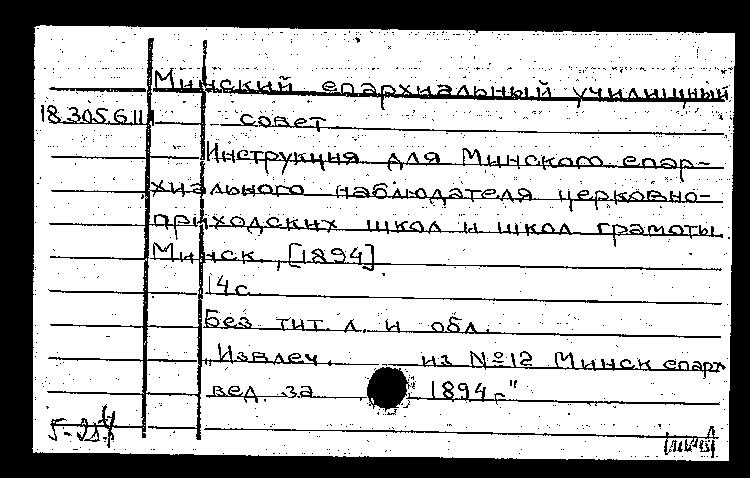 Минский епархиальный училищный
18.305.6.11 совет
Инструкция для Минского епар-
хиального наблюдателя церковно-
приходских школ и школ грамоты.
Минск, [1894]
14с.
Без тит. л. и обл.
„Извлеч. из №12 Минск епарх
вед. за 1894г."